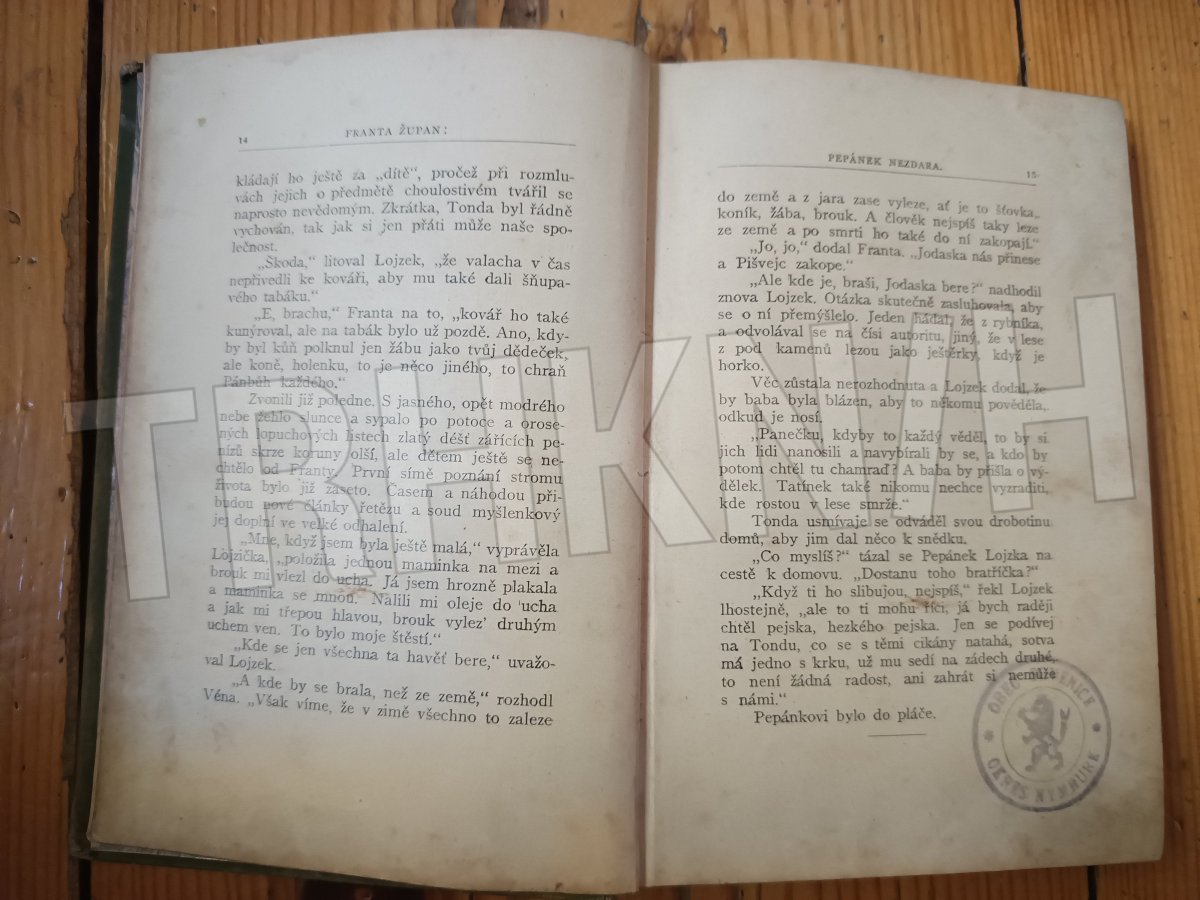 14
FRANTA ŽUPAN:
kládají ho ještě za „dítě“, pročež při rozmlu-
vách jejich o předmětě choulostivém tvářil se
naprosto nevědomým. Zkrátka, Tonda byl řádně
vychován, tak jak si jen přáti může naše spo-
lečnost.
„Škoda,“ litoval Lojzek, „že valacha v čas
nepřivedli ke kováři, aby mu také dali šňupa-
vého tabáku.“
„E, brachu,“ Franta na to, „kovář ho také
kunýroval, ale na tabák bylo už pozdě. Ano, kdy-
by byl kůň polknul jen žábu jako tvůj dědeček,
ale koně, holenku, to je něco jiného, to chraň
Pánbůh každého.“
Zvonili již poledne. S jasného, opět modrého
nebe žehlo slunce a sypalo po potoce a orose-
ných lopuchových listech zlatý déšť zářících pe-
nízů skrze koruny olší, ale dětem ještě se ne-
chtělo od Franty. První símě poznání stromu
života bylo již zaseto. Časem a náhodou při-
budou nové články řetězu a soud myšlenkový
jej doplní ve velké odhalení.
„Mne, když jsem byla ještě malá,“ vyprávěla
Lojzička, „položila jednou maminka na mezi a
brouk mi vlezl do ucha. Já jsem hrozně plakala
a maminka se mnou. Nalili mi oleje do ucha
a jak mi třepou hlavou, brouk vylez’ druhým
uchem ven. To bylo moje štěstí.“
„Kde se jen všechna ta havěť bere,“ uvažo-
val Lojzek.
„A kde by se brala, než ze země,“ rozhodl
Véna. „Však víme, že v zimě všechno to zaleze
PEPÁNEK NEZDARA.
15
do země a z jara zase vyleze, ať je to šťovka,
koník, žába, brouk. A člověk nejspíš taky leze
ze země a po smrti ho také do ní zakopají.“
„Jo, jo,“ dodal Franta. „Jodaska nás přinese
a Pišvejc zakope.“
„Ale kde je, braši, Jodaska bere?“ nadhodil
znova Lojzek. Otázka skutečně zasluhovala, aby
se o ní přemýšlelo. Jeden hádal, že z rybníka,
a odvolával se na čísi autoritu, jiný, že v lese
z pod kamenů lezou jako ještěrky, když je
horko.
Věc zůstala nerozhodnuta a Lojzek dodal, že
by baba byla blázen, aby to někomu pověděla,
odkud je nosí.
„Panečku, kdyby to každý věděl, to by si
jich lidi nanosili a navybírali by se, a kdo by
potom chtěl tu chamraď? A baba by přišla o vý-
dělek. Tatínek také nikomu nechce vyzraditi,
kde rostou v lese smrže.“
Tonda usmívaje se odváděl svou drobotinu
domů, aby jim dal něco k snědku.
„Co myslíš?“ tázal se Pepánek Lojzka na
cestě k domovu. „Dostanu toho bratříčka?“
„Když ti ho slibujou, nejspíš,“ řekl Lojzek
lhostejně, „ale to ti mohu říci, já bych raději
chtěl pejska, hezkého pejska. Jen se podívej
na Tondu, co se s těmi cikány natahá, sotva
má jedno s krku, už mu sedí na zádech druhé,
to není žádná radost, ani zahrát si nemůže
s námi.“
Pepánkovi bylo do pláče.
OBEC
OKRES NYMBURK
TRHKNIH